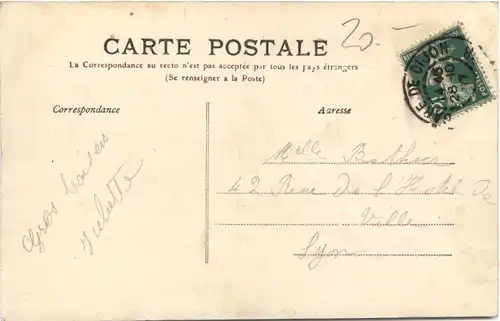 20.-
CARTE POSTALE
La Correspondance au recto n'est pas acceptée par tous les pays étrangers
(Se renseigner a la Poste)
GARE DE DIJON
28
Correspondance
Adresse
Gros baisers
Juliette
Melle
42 Rue de l'Hotel de
Ville
Lyon